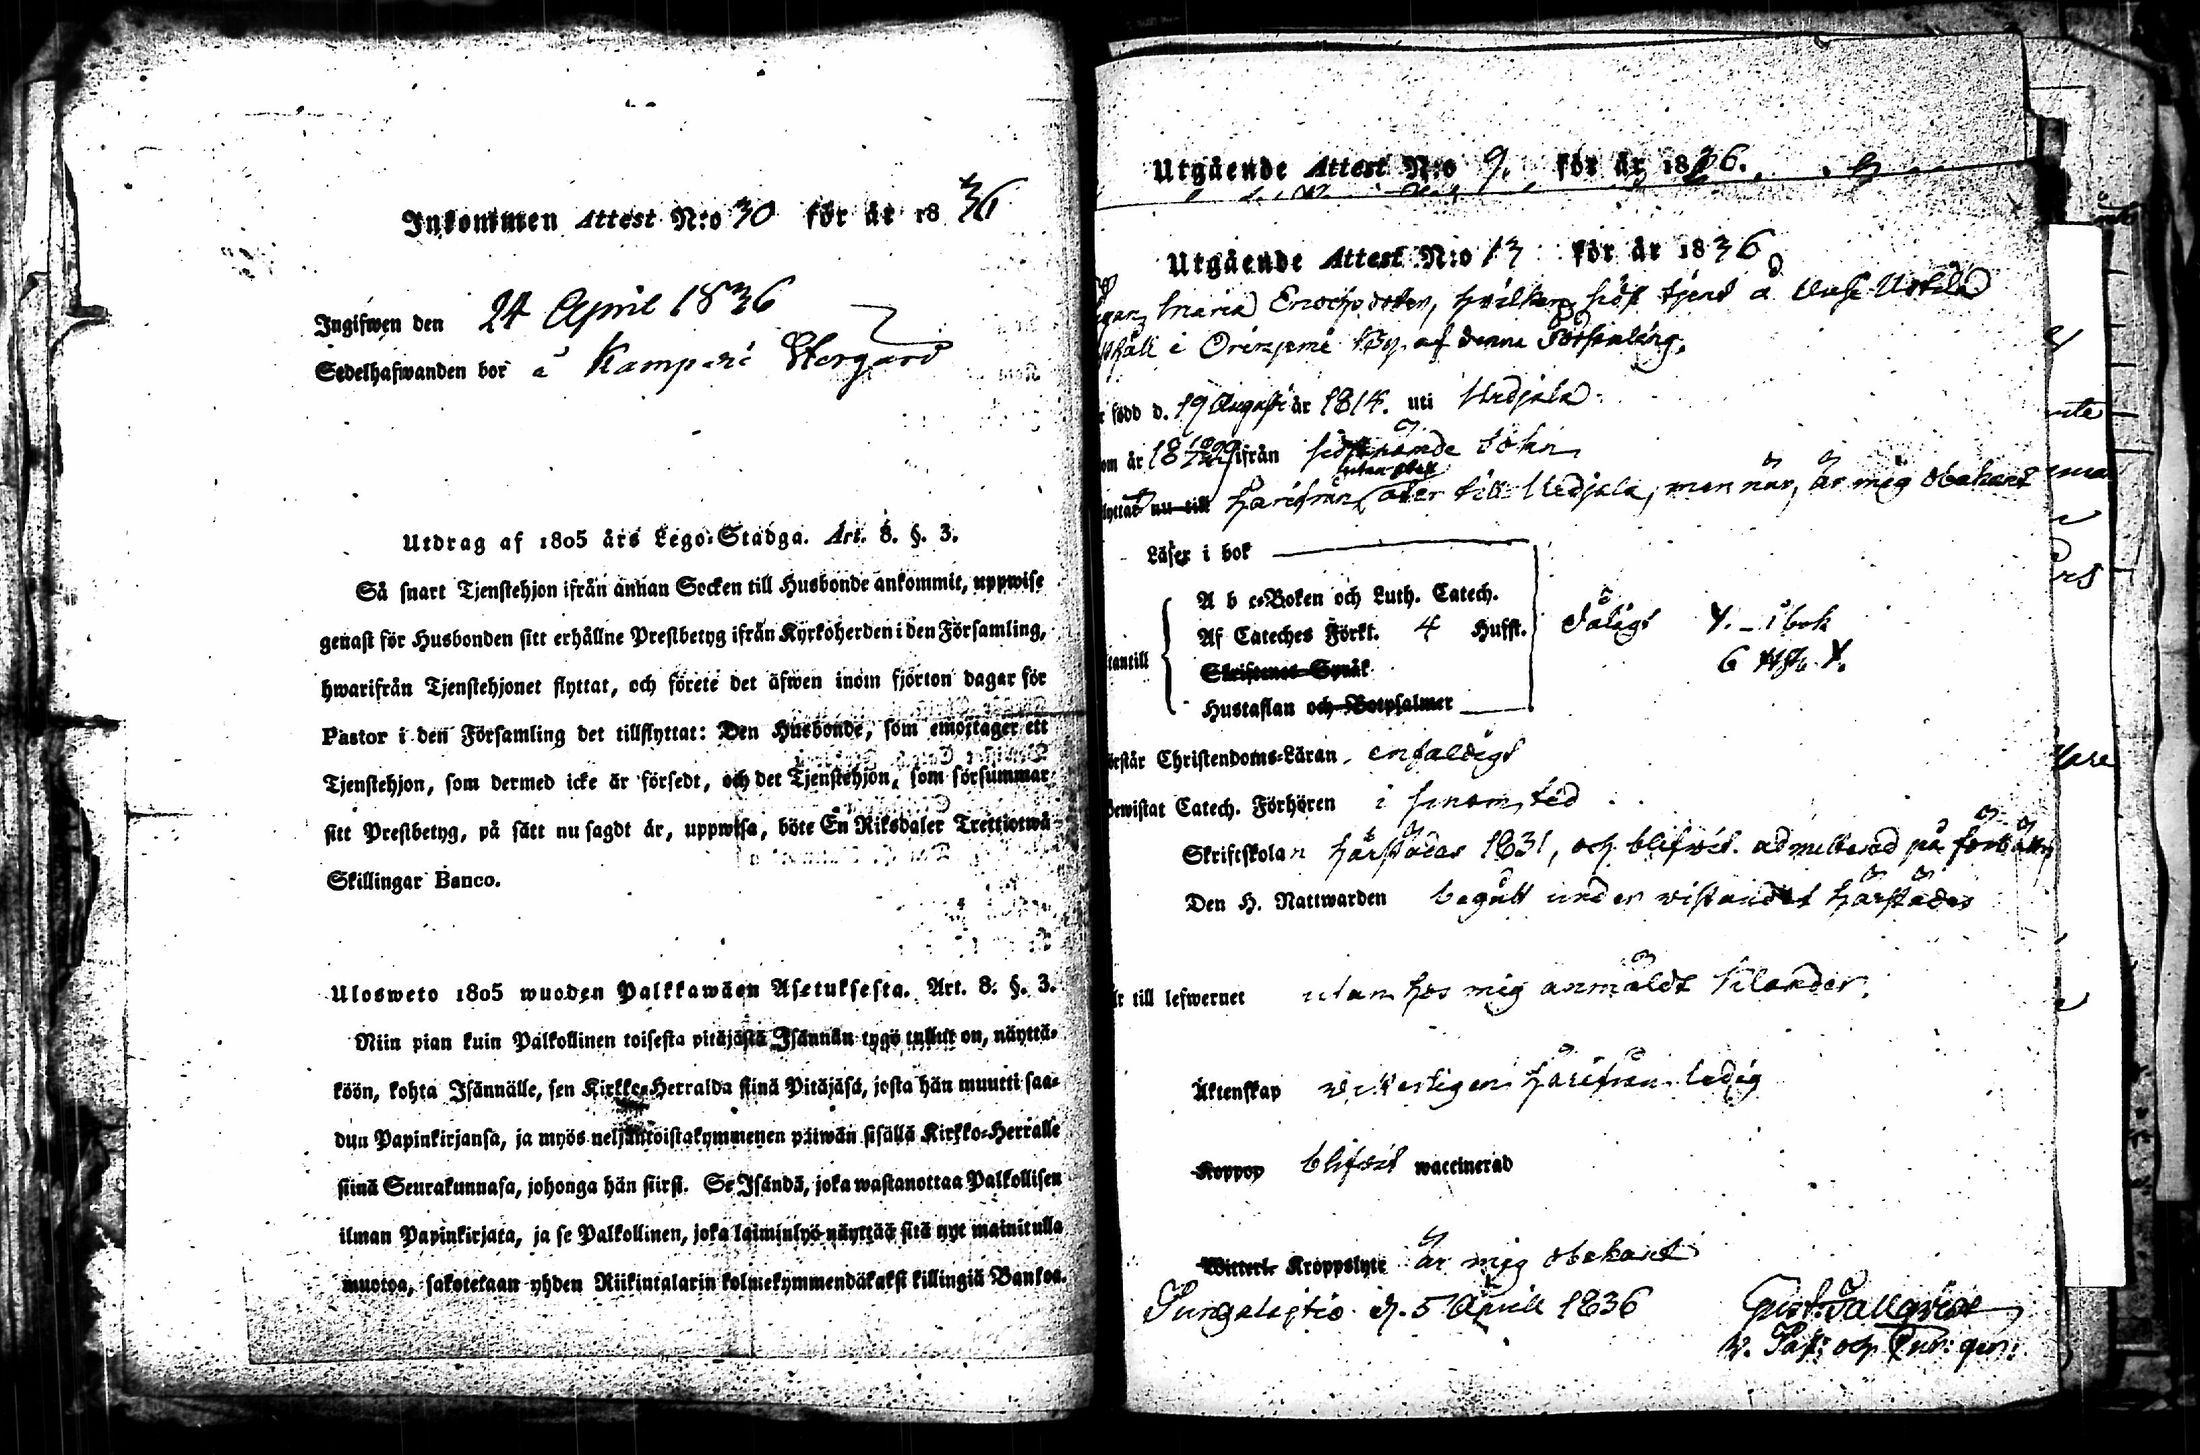 Inkommen Attest N:o 30 för år 1836
Ingifwen den 24 April 1836
Sedelhafwanden bor å Kamp Hergård
Utdrag af 1805 års Lego-Stadga. Art. 8. §. 3.
Så snart Tjenstehjon ifrån annan Socken till Husbonde ankommit, uppwise
genast för Husbonden sitt erhållne Prestbetyg ifrån Kyrkoherden i den Församling,
hwarifrån Tjenstehjonet flyttat, och förete det äfwen inom fjorton dagar för
Pastor i den Församling det tillflyttat: Den Husbonde, som emottager ett
Tjenstehjon, som dermed icke är försedt, och det Tjenstehjon, som försummar
sitt Prestbetyg, på sätt nu sagdt är, uppwisa, böte En Riksdaler Trettiotwå
Skillingar Banco.
Ulosweto 1805 wuoden Palkkawäen Asetuksesta. Art. 8. §. 3.
Niin pian kuin Palkollinen toisesta pitäjästä Isännän tygö tullut on, näyttä-
köön, kohta Isännälle, sen Kirkko-Herralda siinä Pitäjäsä, josta hän muutti saa-
dun Papinkirjansa, ja myös neljäntoistakymmenen päiwän sisällä Kirkko-Herralle
siinä Seurakunnasa, johonga hän siirsi. Se Isändä, joka wastanottaa Palkollisen
ilman Papinkirjata, ja se Palkollinen, joka laiminlyö näyttää sitä nyt mainitulla
muotoa, sakotetaan yhden Riikintalarin kolmekymmendäkaksi killingiä Bankoa.
Utgående Attest N:o 9. för år 1836.
Utgående Attest N:o 13 för år 1836
Maria Enochsdotter, hvilken sist tjent å
i Orinjemi By af denna Församling,
född d. 19 Augusti år 1814. uti Urdjala
om år 18 ifrån sistnämnde Sokn
utan
flyttat nu till härifrån åter till Urdjala, men när, är mig obekant
Läser i bok
A b c-Boken och Luth. Catech.
Af Cateches Förkl. 4 Hufst. dåligt i bok
utantill 6
Skriftenes Språk
Hustaflan och Botpsalmer
Förstår Christendoms-Läran enfaldigt
Bewistat Catech. Förhören i sinom tid
Skriftskolan härstädes 1831, och blifvit admitterad på förbättr
Den H. Nattwarden begått under vistandet härstädes
Är till lefwernet utan hos mig anmäldt klander.
Äktenskap veterligen härifrån ledig
Koppor blifvit waccinerad
Witterl. Kroppslyte är mig obekant
Sungalajtio d. 5 April 1836 Gust. Tallqvist